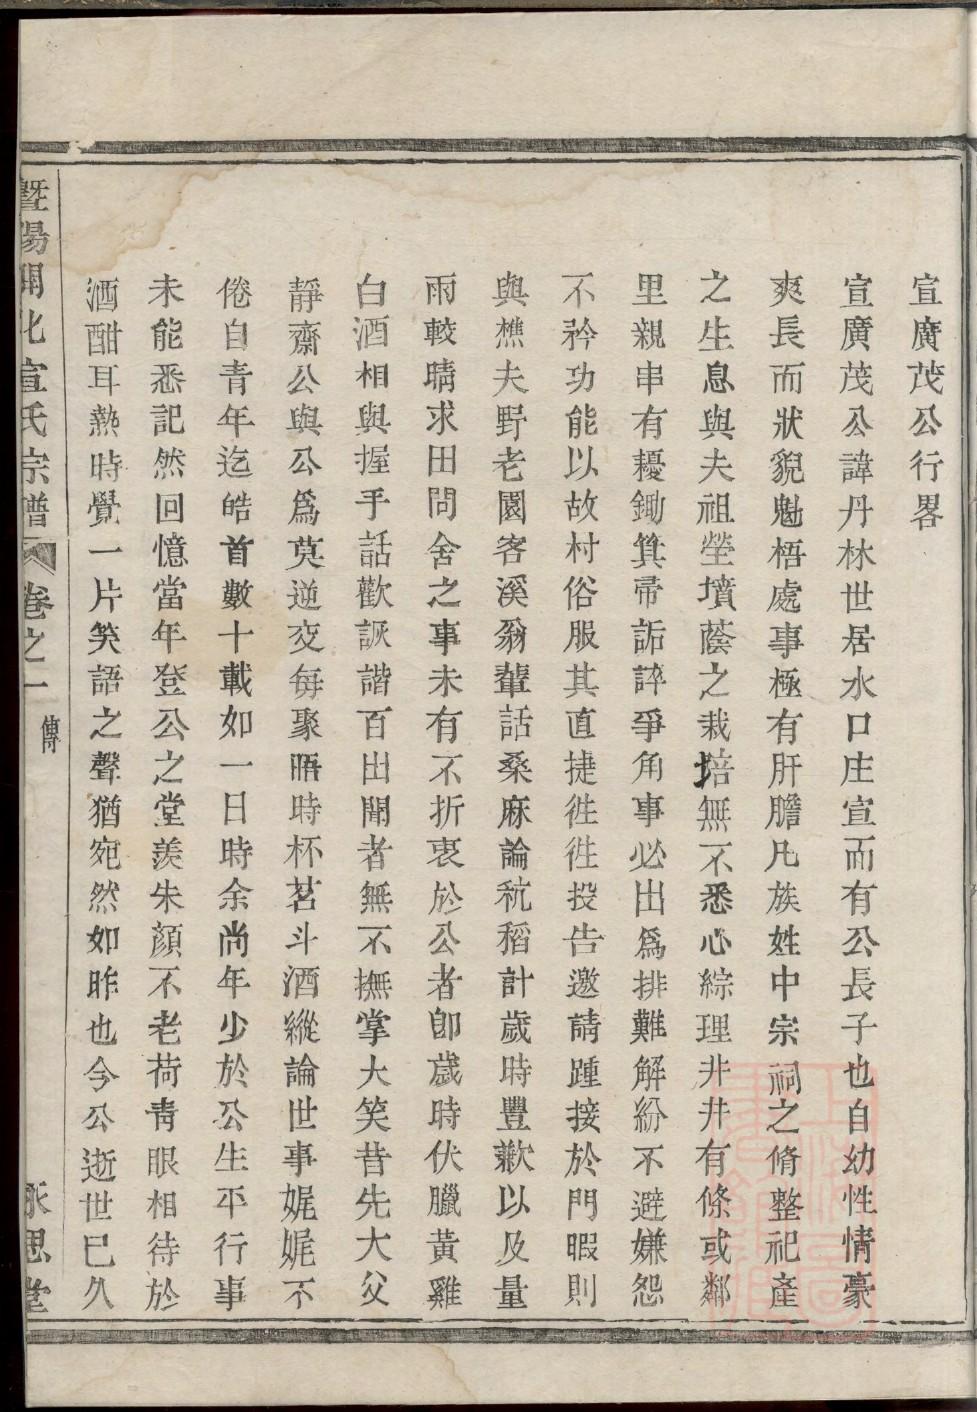 宣廣茂公行畧
宣廣茂公諱丹林世居水口庄宣而有公長子也自幼性情豪
爽長而狀貌魁梧處事極有肝膽凡族姓中宗祠之脩整祀產
之生息與夫祖塋墳蔭之栽培無不悉心綜理井井有條或鄰
里親串有耰鋤箕帚詬誶爭角事必出爲排難解紛不避嫌怨
不矜功能以故村俗服其直捷徃徃投告邀請踵接於門暇則
與樵夫野老園客溪翁輩話桑麻論秔稻計歲時豐歉以及量
雨較晴求田問舍之事未有不折衷於公者卽歲時伏臘黃雞
白酒相與握手話歡詼諧百出聞者無不撫掌大笑昔先大父
靜齋公與公爲莫逆交每聚晤時杯茗斗酒縱論世事娓娓不
倦自青年迄皓首數十載如一日時余尚年少於公生平行事
未能悉記然回憶當年登公之堂羨朱顏不老荷青眼相待於
酒酣耳熱時覺一片笑語之聲猶宛然如昨也今公逝世已久
暨陽開化宣氏宗譜 卷之一 傳 承思堂